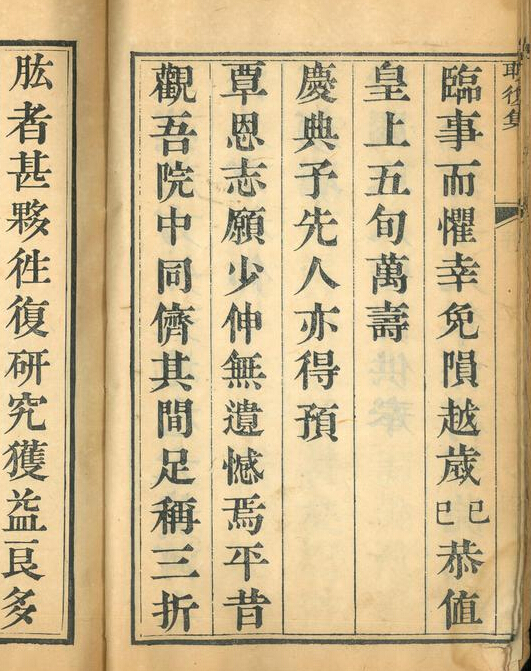 復集
臨事而懼幸免隕越歲己巳恭值
皇上五旬萬壽
慶典予先人亦得預
覃恩志願少伸無遺憾焉平昔
觀吾院中同儕其間足稱三折
肱者甚夥徃復研究獲益良多